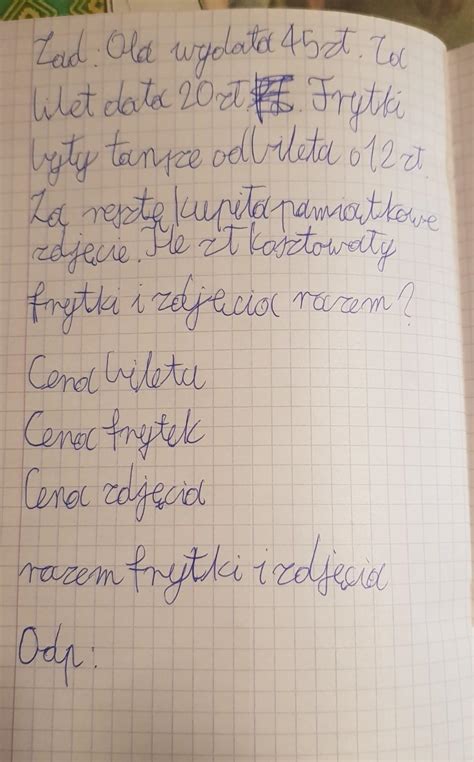 Zad. Ola wydała 45 zł. Za
bilet dała 20 zł. Frytki
były tańsze od bileta o 12 zł.
Za resztę kupiła pamiątkowe
zdjęcie. Ile zł kosztowały
frytki i zdjęcia razem?
Cena biletu
Cena frytek
Cena zdjęcia
razem frytki i zdjęcia
Odp: